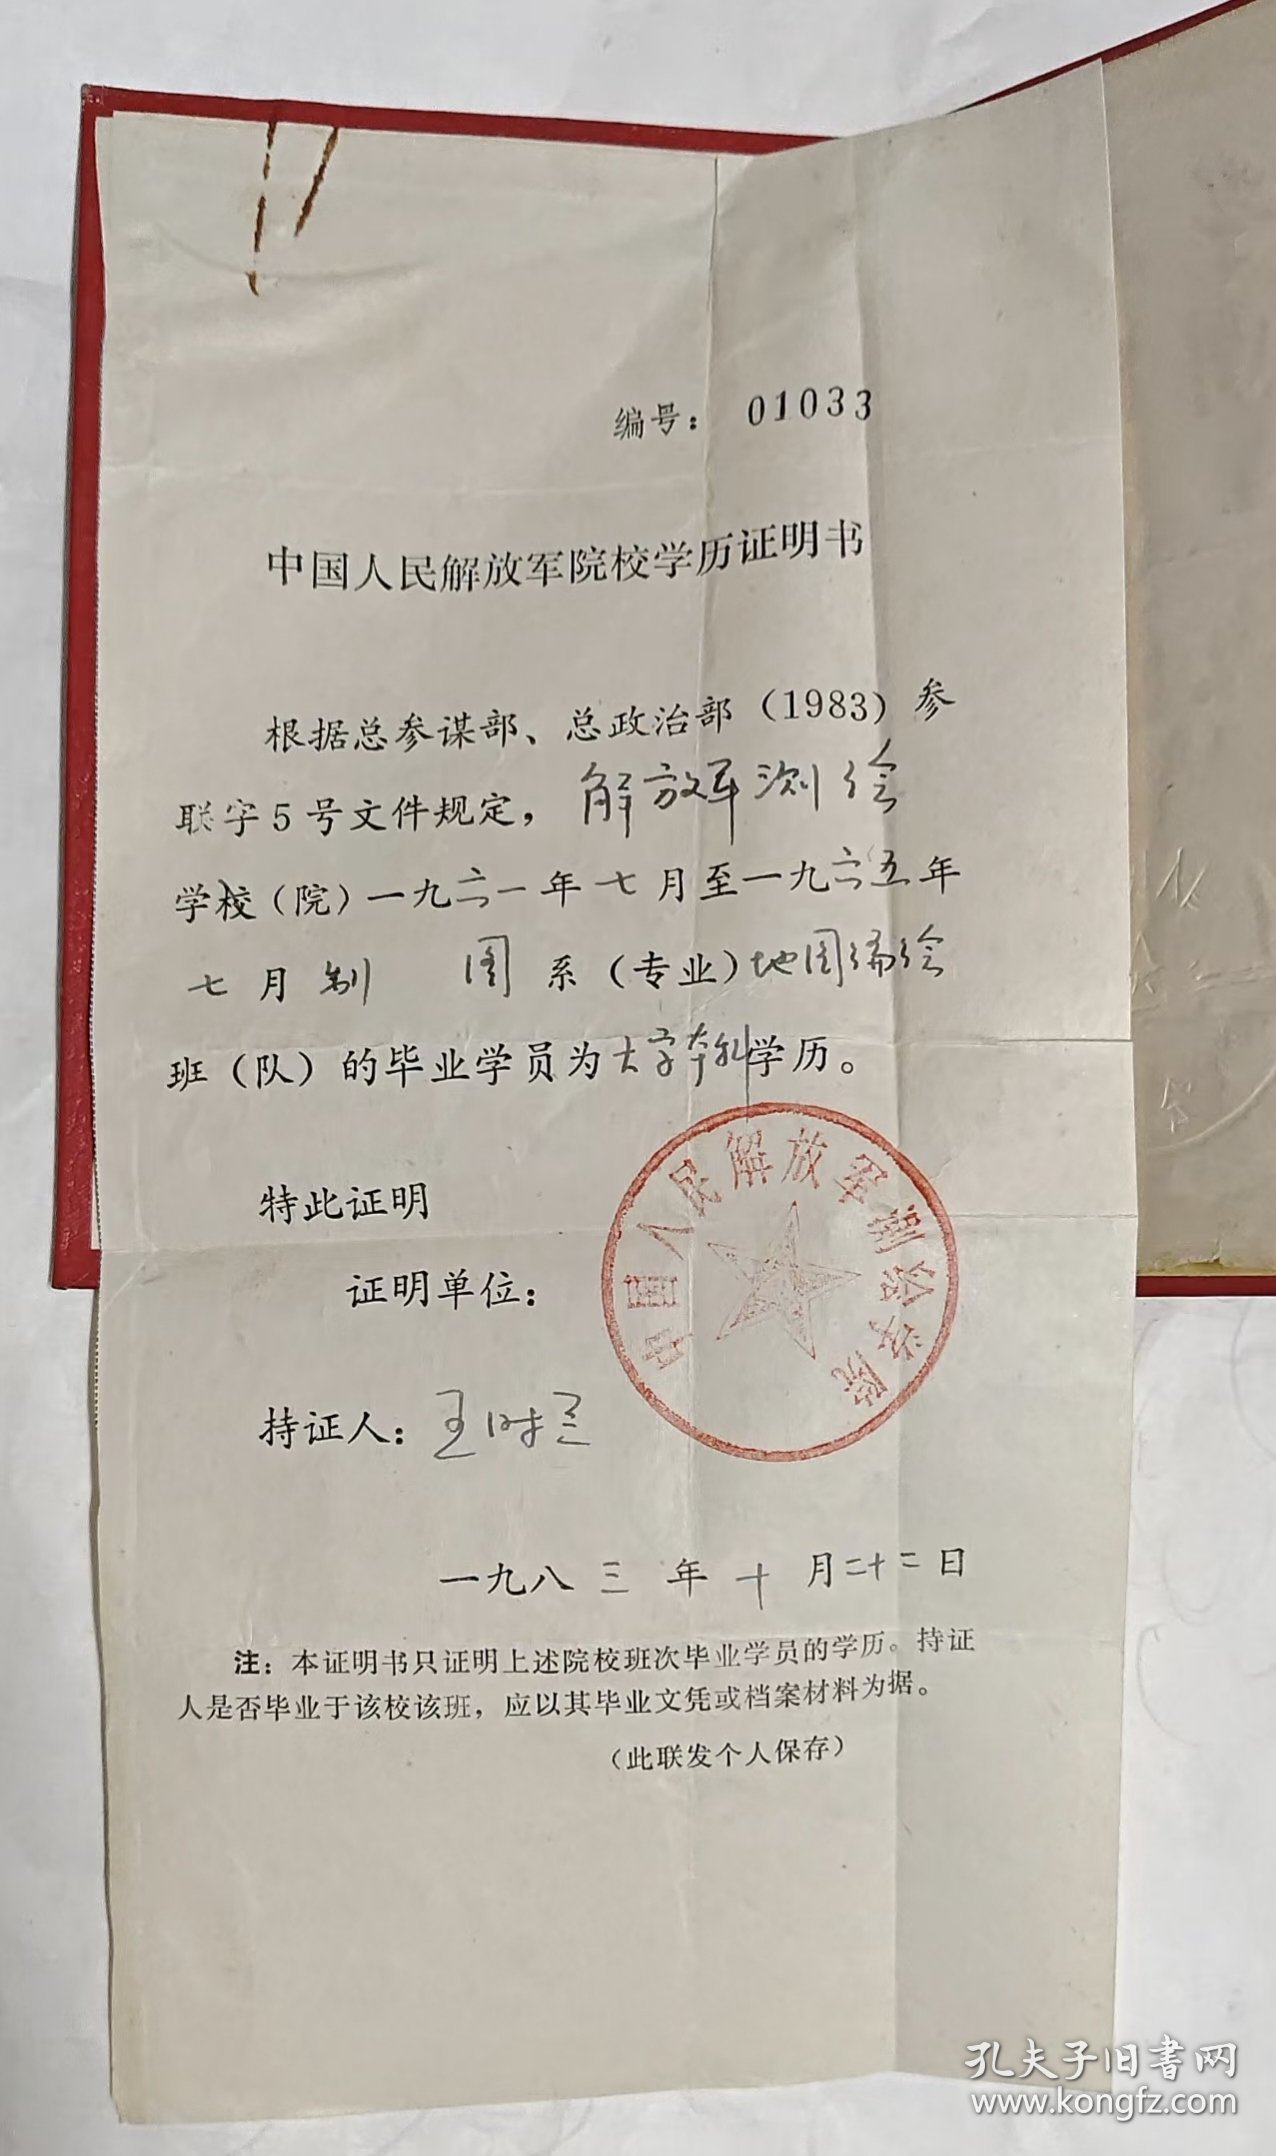 编号：01033
中国人民解放军院校学历证明书
根据总参谋部、总政治部（1983）参
联字5号文件规定，解放军测绘
学校（院）一九六一年七月至一九六五年
七月制图系（专业）地图编绘
班（队）的毕业学员为大学本科学历。
特此证明
证明单位：
中国人民解放军测绘学院
持证人：王时兰
一九八三年十月二十二日
注：本证明书只证明上述院校班次毕业学员的学历。持证
人是否毕业于该校该班，应以其毕业文凭或档案材料为据。
（此联发个人保存）
孔夫子旧书网
www.kongfz.com